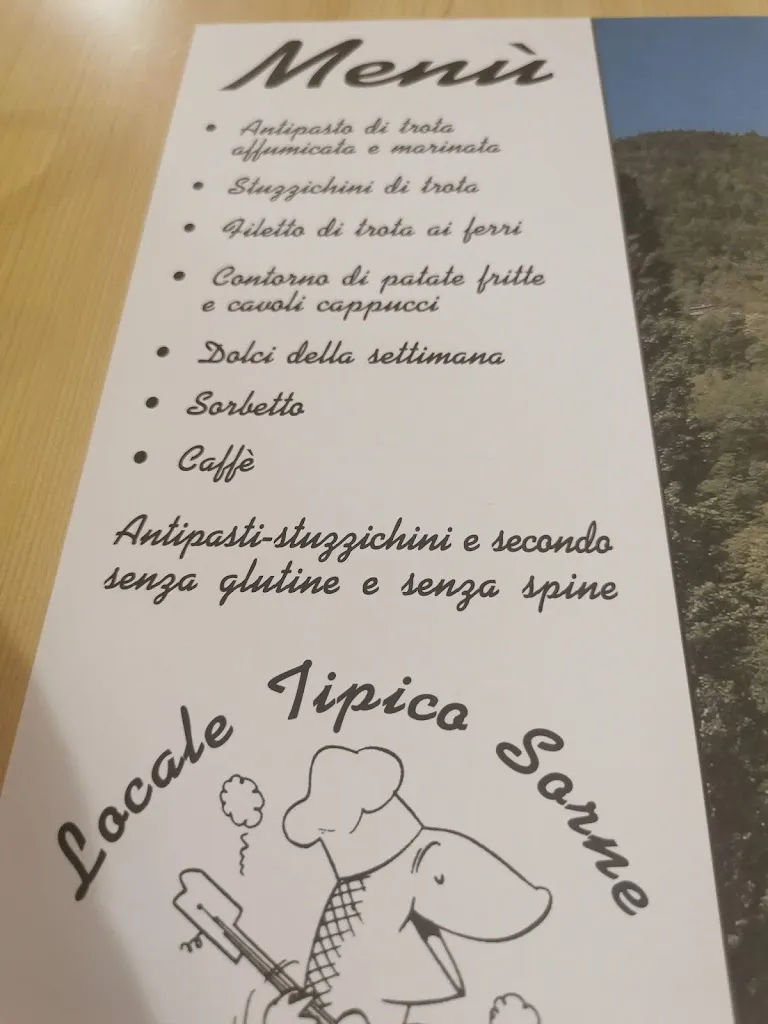 Menù
• Antipasto di trota
affumicata e marinata
• Stuzzichini di trota
• Filetto di trota ai ferri
• Contorno di patate fritte
e cavoli cappucci
• Dolci della settimana
• Sorbetto
• Caffè
Antipasti-stuzzichini e secondo
senza glutine e senza spine
Locale Tipico Sorne